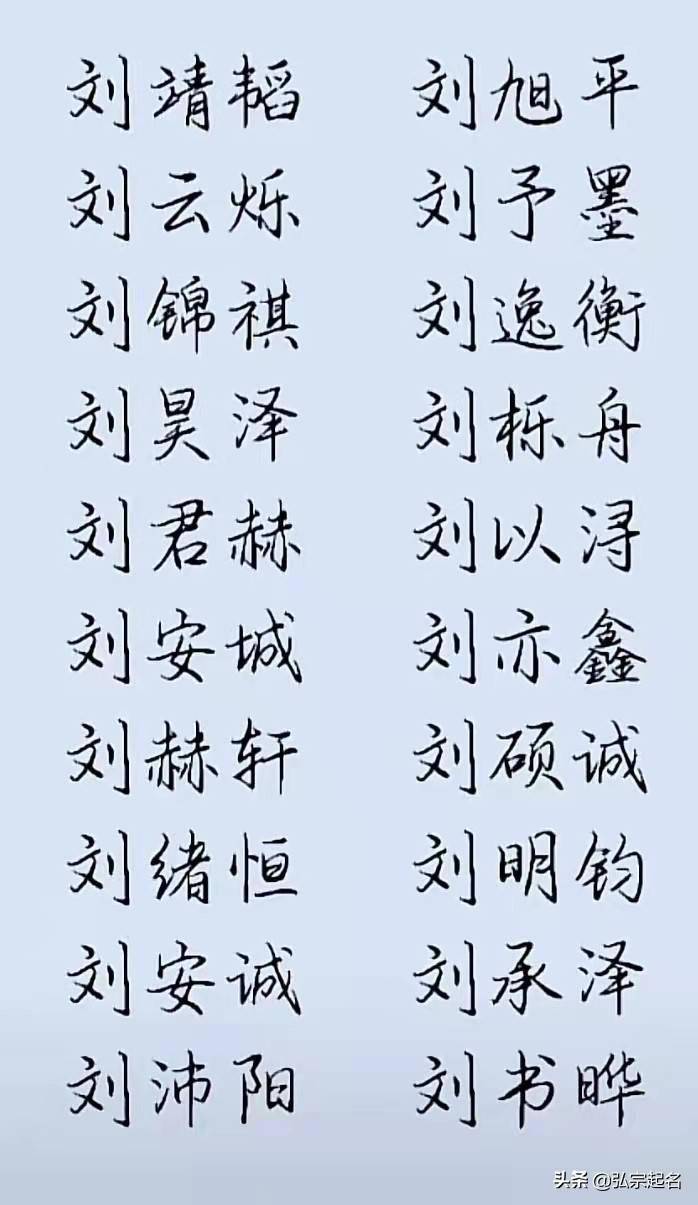 刘靖韬 刘旭平
刘云烁 刘予墨
刘锦祺 刘逸衡
刘昊泽 刘栎舟
刘君赫 刘以浔
刘安城 刘亦鑫
刘赫轩 刘硕诚
刘绪恒 刘明钧
刘安诚 刘承泽
刘沛阳 刘书晔
头条 @弘宗起名